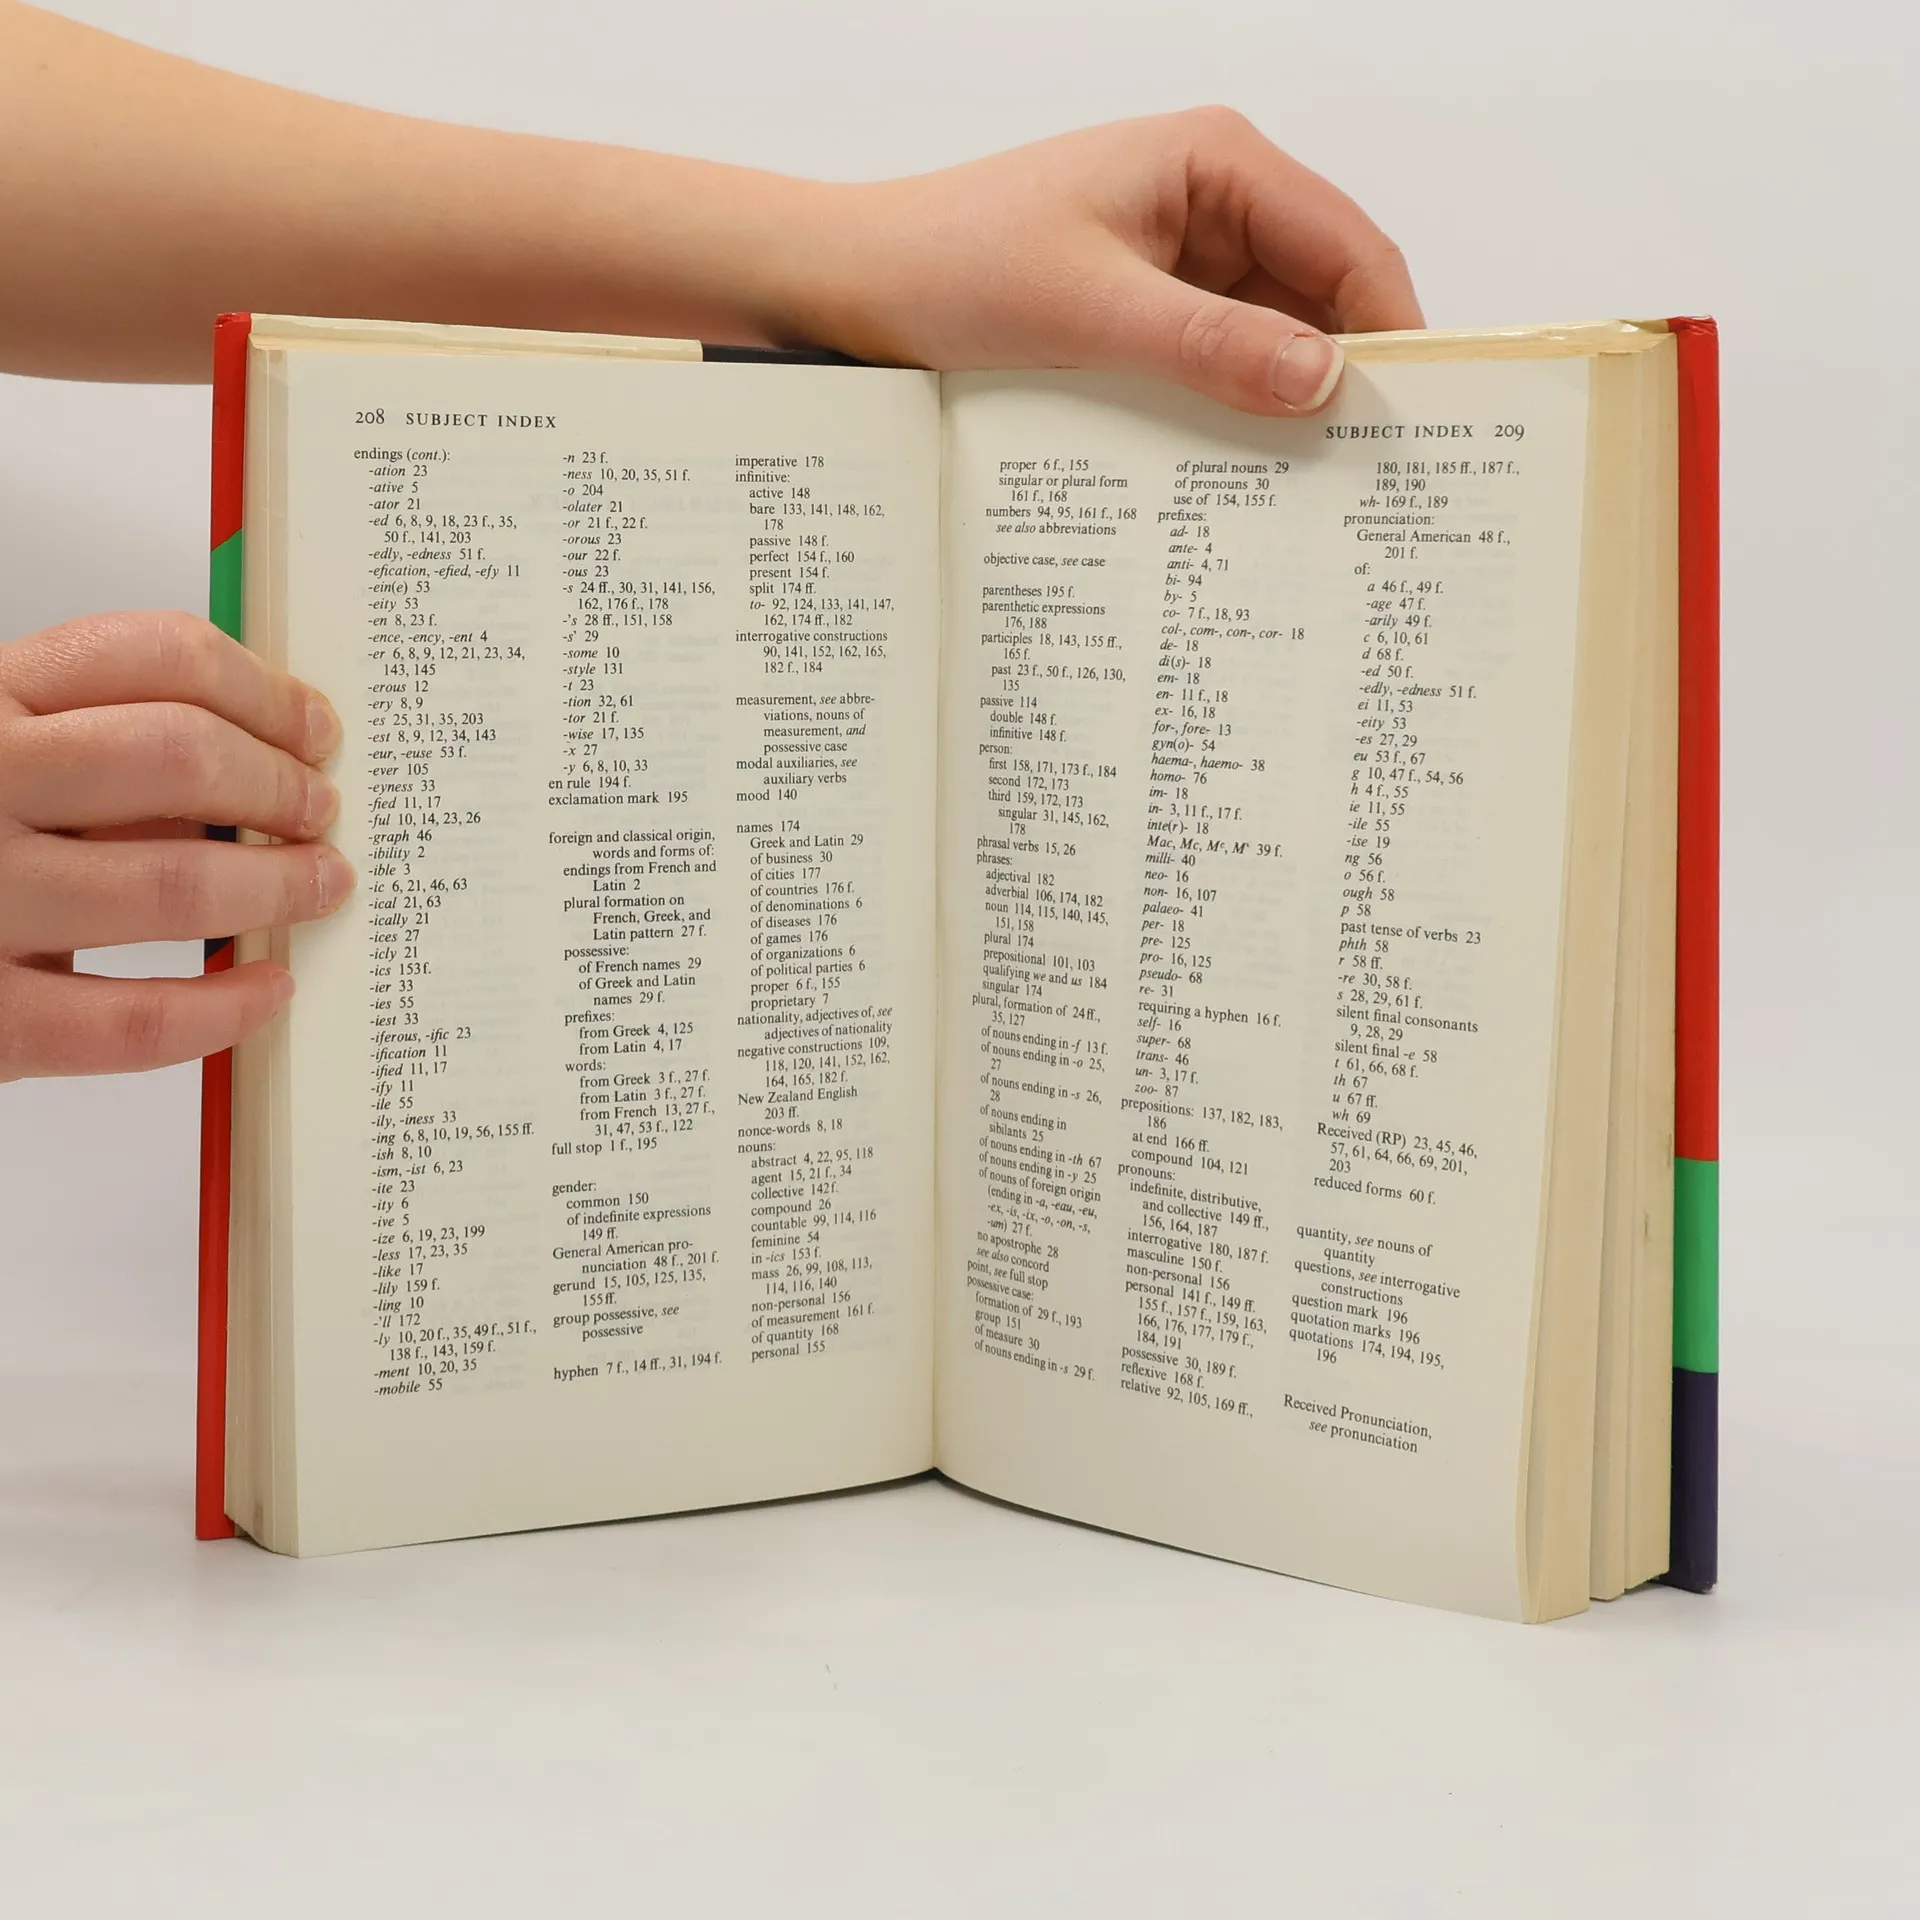 208 SUBJECT INDEX
endings (cont.):
-ation 23
-ative 5
-ator 21
-ed 6, 8, 9, 18, 23 f., 35,
50 f., 141, 203
-edly, -edness 51 f.
-efication, -efied, -efy 11
-ein(e) 53
-eity 53
-en 8, 23 f.
-ence, -ency, -ent 4
-er 6, 8, 9, 12, 21, 23, 34,
143, 145
-erous 12
-ery 8, 9
-es 25, 31, 35, 203
-est 8, 9, 12, 34, 143
-eur, -euse 53 f.
-ever 105
-eyness 33
-fied 11, 17
-ful 10, 14, 23, 26
-graph 46
-ibility 2
-ible 3
-ic 6, 21, 46, 63
-ical 21, 63
-ically 21
-ices 27
-icly 21
-ics 153 f.
-ier 33
-ies 55
-iest 33
-iferous, -ific 23
-ification 11
-ified 11, 17
-ify 11
-ile 55
-ily, -iness 33
-ing 6, 8, 10, 19, 56, 155 ff.
-ish 8, 10
-ism, -ist 6, 23
-ite 23
-ity 6
-ive 5
-ize 6, 19, 23, 199
-less 17, 23, 35
-like 17
-lily 159 f.
-ling 10
-'ll 172
-ly 10, 20 f., 35, 49 f., 51 f.,
138 f., 143, 159 f.
-ment 10, 20, 35
-mobile 55
-n 23 f.
-ness 10, 20, 35, 51 f.
-o 204
-olater 21
-or 21 f., 22 f.
-orous 23
-our 22 f.
-ous 23
-s 24 ff., 30, 31, 141, 156,
162, 176 f., 178
-'s 28 ff., 151, 158
-s' 29
-some 10
-style 131
-t 23
-tion 32, 61
-tor 21 f.
-wise 17, 135
-x 27
-y 6, 8, 10, 33
en rule 194 f.
exclamation mark 195
foreign and classical origin,
words and forms of:
endings from French and
Latin 2
plural formation on
French, Greek, and
Latin pattern 27 f.
possessive:
of French names 29
of Greek and Latin
names 29 f.
prefixes:
from Greek 4, 125
from Latin 4, 17
words:
from Greek 3 f., 27 f.
from Latin 3 f., 27 f.
from French 13, 27 f.,
31, 47, 53 f., 122
full stop 1 f., 195
gender:
common 150
of indefinite expressions
149 ff.
General American pro-
nunciation 48 f., 201 f.
gerund 15, 105, 125, 135,
155 ff.
group possessive, see
possessive
hyphen 7 f., 14 ff., 31, 194 f.
imperative 178
infinitive:
active 148
bare 133, 141, 148, 162,
178
passive 148 f.
perfect 154 f., 160
present 154 f.
split 174 ff.
to- 92, 124, 133, 141, 147,
162, 174 ff., 182
interrogative constructions
90, 141, 152, 162, 165,
182 f., 184
measurement, see abbre-
viations, nouns of
measurement, and
possessive case
modal auxiliaries, see
auxiliary verbs
mood 140
names 174
Greek and Latin 29
of business 30
of cities 177
of countries 176 f.
of denominations 6
of diseases 176
of games 176
of organizations 6
of political parties 6
proper 6 f., 155
proprietary 7
nationality, adjectives of, see
adjectives of nationality
negative constructions 109,
118, 120, 141, 152, 162,
164, 165, 182 f.
New Zealand English
203 ff.
nonce-words 8, 18
nouns:
abstract 4, 22, 95, 118
agent 15, 21 f., 34
collective 142 f.
compound 26
countable 99, 114, 116
feminine 54
in -ics 153 f.
mass 26, 99, 108, 113,
114, 116, 140
non-personal 156
of measurement 161 f.
of quantity 168
personal 155
SUBJECT INDEX 209
proper 6 f., 155
singular or plural form
161 f., 168
numbers 94, 95, 161 f., 168
see also abbreviations
objective case, see case
parentheses 195 f.
parenthetic expressions
176, 188
participles 18, 143, 155 ff.,
165 f.
past 23 f., 50 f., 126, 130,
135
passive 114
double 148 f.
infinitive 148 f.
person:
first 158, 171, 173 f., 184
second 172, 173
third 159, 172, 173
singular 31, 145, 162,
178
phrasal verbs 15, 26
phrases:
adjectival 182
adverbial 106, 174, 182
noun 114, 115, 140, 145,
151, 158
plural 174
prepositional 101, 103
qualifying we and us 184
singular 174
plural, formation of 24 ff.,
35, 127
of nouns ending in -f 13 f.
of nouns ending in -o 25,
27
of nouns ending in -s 26,
28
of nouns ending in
sibilants 25
of nouns ending in -th 67
of nouns ending in -y 25
of nouns of foreign origin
(ending in -a, -eau, -eu,
-ex, -is, -ix, -o, -on, -s,
-um) 27 f.
no apostrophe 28
see also concord
point, see full stop
possessive case:
formation of 29 f., 193
group 151
of measure 30
of nouns ending in -s 29 f.
of plural nouns 29
of pronouns 30
use of 154, 155 f.
prefixes:
ad- 18
ante- 4
anti- 4, 71
bi- 94
by- 5
co- 7 f., 18, 93
col-, com-, con-, cor- 18
de- 18
di(s)- 18
em- 18
en- 11 f., 18
ex- 16, 18
for-, fore- 13
gyn(o)- 54
haema-, haemo- 38
homo- 76
im- 18
in- 3, 11 f., 17 f.
inte(r)- 18
Mac, Mc, Mᶜ, Mʻ 39 f.
milli- 40
neo- 16
non- 16, 107
palaeo- 41
per- 18
pre- 125
pro- 16, 125
pseudo- 68
re- 31
requiring a hyphen 16 f.
self- 16
super- 68
trans- 46
un- 3, 17 f.
zoo- 87
prepositions: 137, 182, 183,
186
at end 166 ff.
compound 104, 121
pronouns:
indefinite, distributive,
and collective 149 ff.,
156, 164, 187
interrogative 180, 187 f.
masculine 150 f.
non-personal 156
personal 141 f., 149 ff.
155 f., 157 f., 159, 163,
166, 176, 177, 179 f.,
184, 191
possessive 30, 189 f.
reflexive 168 f.
relative 92, 105, 169 ff.,
180, 181, 185 ff., 187 f.,
189, 190
wh- 169 f., 189
pronunciation:
General American 48 f.,
201 f.
of:
a 46 f., 49 f.
-age 47 f.
-arily 49 f.
c 6, 10, 61
d 68 f.
-ed 50 f.
-edly, -edness 51 f.
ei 11, 53
-eity 53
-es 27, 29
eu 53 f., 67
g 10, 47 f., 54, 56
h 4 f., 55
ie 11, 55
-ile 55
-ise 19
ng 56
o 56 f.
ough 58
p 58
past tense of verbs 23
phth 58
r 58 ff.
-re 30, 58 f.
s 28, 29, 61 f.
silent final consonants
9, 28, 29
silent final -e 58
t 61, 66, 68 f.
th 67
u 67 ff.
wh 69
Received (RP) 23, 45, 46,
57, 61, 64, 66, 69, 201,
203
reduced forms 60 f.
quantity, see nouns of
quantity
questions, see interrogative
constructions
question mark 196
quotation marks 196
quotations 174, 194, 195,
196
Received Pronunciation,
see pronunciation